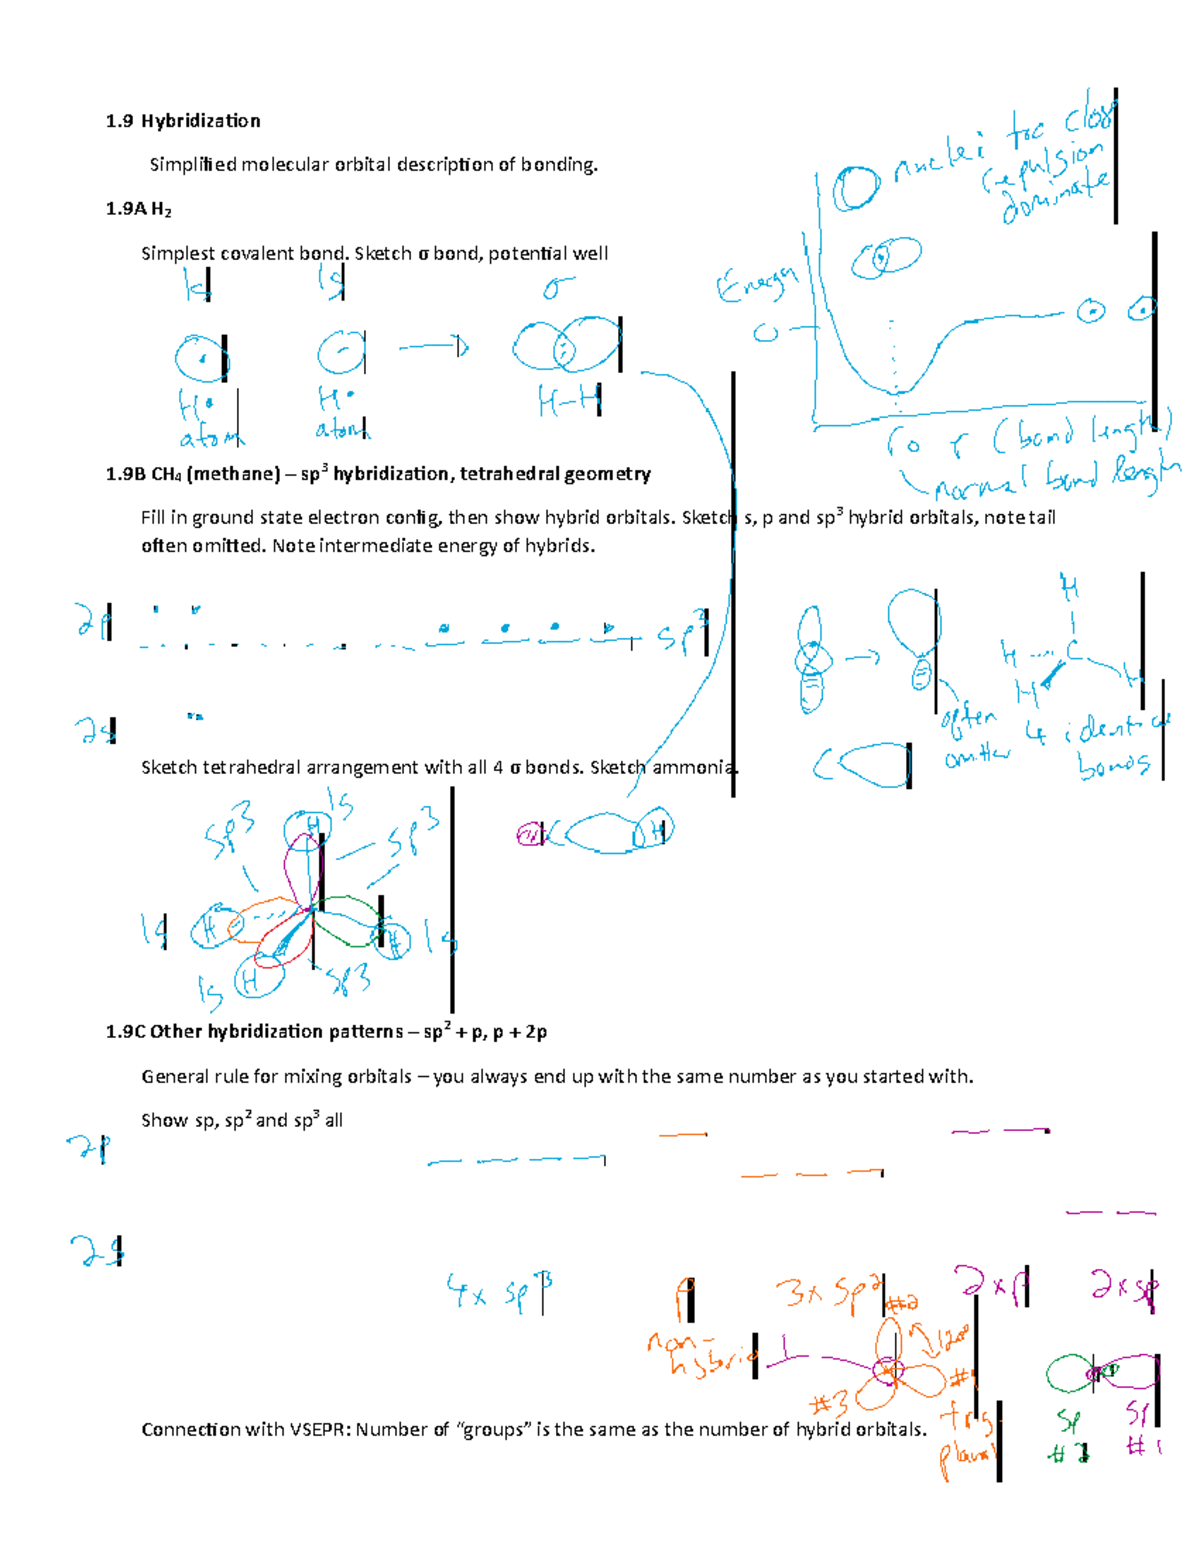 1.9 Hybridization
Simplified molecular orbital description of bonding.
1.9A H₂
Simplest covalent bond. Sketch σ bond, potential well
1s 1s σ
H• H• H–H
atom atom
nuclei too close
repulsion
dominate
Energy
0
r₀ r (bond length)
normal bond length
1.9B CH₄ (methane) – sp³ hybridization, tetrahedral geometry
Fill in ground state electron config, then show hybrid orbitals. Sketch s, p and sp³ hybrid orbitals, note tail
often omitted. Note intermediate energy of hybrids.
2p sp³
2s
often
omitted
H
H C H
H
4 identical
bonds
C
Sketch tetrahedral arrangement with all 4 σ bonds. Sketch ammonia.
sp³ 1s sp³
H
C H
1s H H 1s
1s H sp3
1.9C Other hybridization patterns – sp² + p, p + 2p
General rule for mixing orbitals – you always end up with the same number as you started with.
Show sp, sp² and sp³ all
2p
2s
4x sp³ p 3x sp² 2xp 2xsp
non-
hybrid
#2
120°
#1
#3
trig
planar
sp
#2
sp
#1
Connection with VSEPR: Number of “groups” is the same as the number of hybrid orbitals.